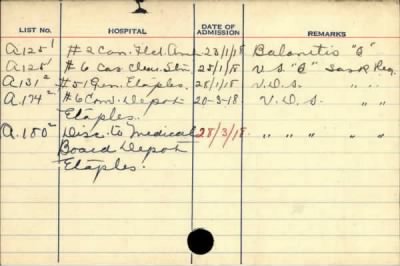 LIST NO. HOSPITAL DATE OF ADMISSION REMARKS
A125¹ #2 Can. Fld. Amb 23/1/18 Balanitis "C"
A125¹ #6 Cas. Clear. Stn. 25/1/18 V.S. "C" Sask Reg.
A131² #51 Gen. Etaples. 28/1/18 V.D.S. " "
A174² #6 Conv. Depot 20-3-18. V.D.S. " "
Etaples.
A.180² Disc. to Medical 28/3/18. " " " " "
Board Depot
Etaples.